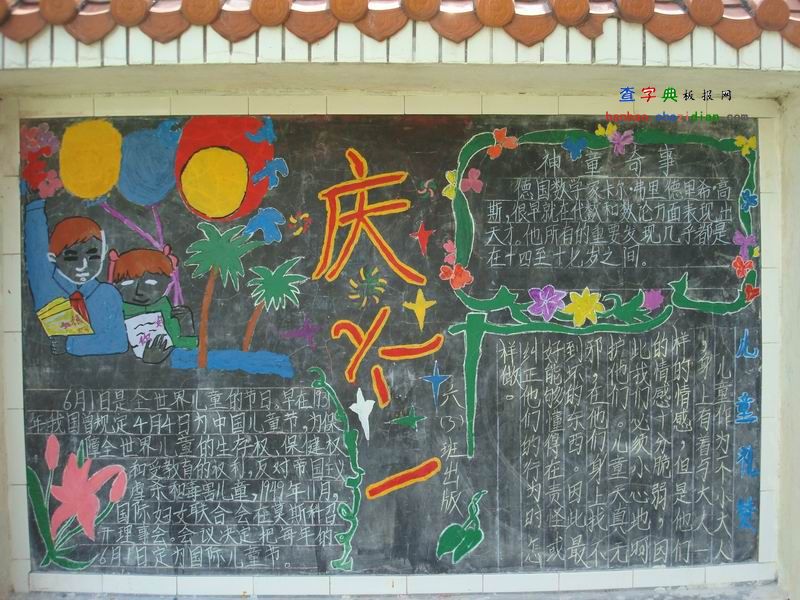 查字典 板报网
庆六一
六(3)班出版
神童奇事
德国数学家卡尔·弗里德里希·高
斯,很早就在代数和数论方面表现出
天才。他所有的重要发现,几乎都是
在十四至十七岁之间。
6月1日是全世界儿童的节日。早在
年我国曾规定4月4日为中国儿童节,为保
障全世界儿童的生存权、保健权
和受教育的权利,反对帝国主义
虐杀和毒害儿童,1949年11月,
国际妇女联合会在莫斯科召
开理事会。会议决定把每年的
6月1日定为国际儿童节。
儿童礼赞
儿童作为一个小大人
,身上有着与大人一
样的情感,但是他们
的情感十分脆弱,因
此我们必须小心也呵
护他们。儿童天真无
邪,在他们身上找不
到坏的东西。因此最
好能够懂得在责怪或
纠正他们的行为时怎
样做。